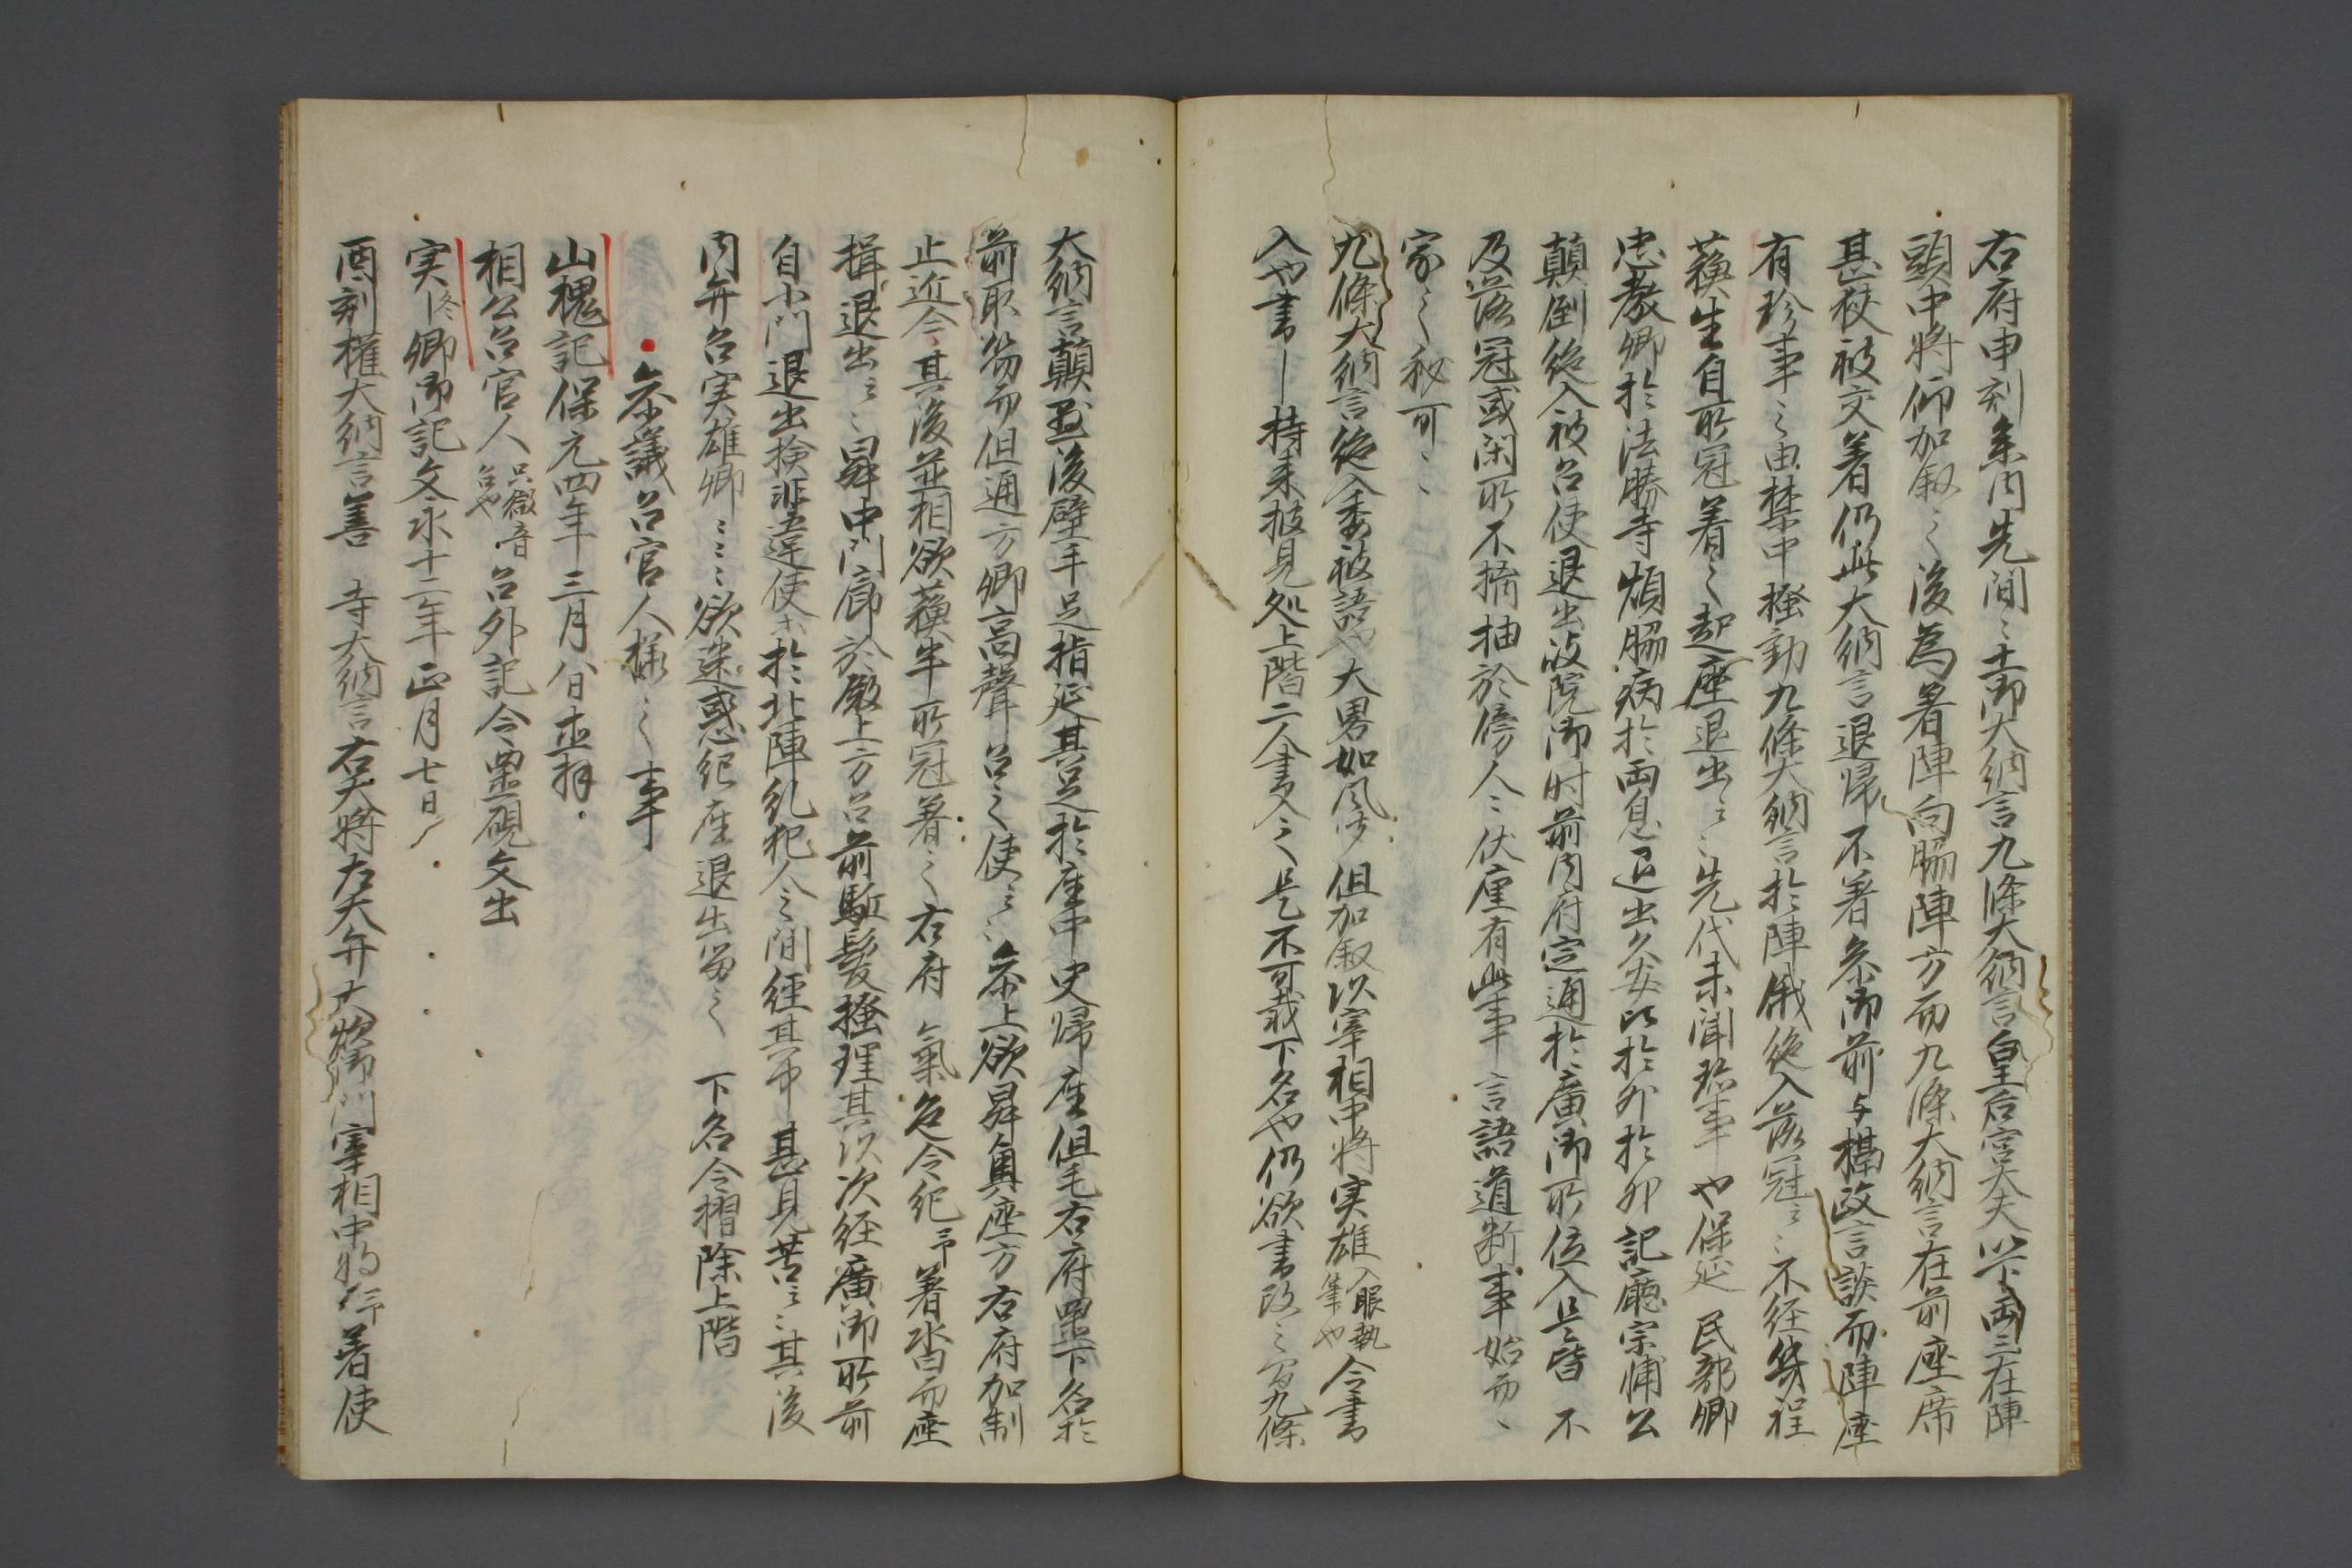 右府申刻参内先間々土御大納言九條大納言皇后宮大夫以下両三在陣
頭中将仰加叙々後為著陣向脇陣方而九條大納言在前座席
甚被交著仍此大納言退帰不著参御前与摂政言談而陣座
有珍事々由禁中騒動九條大納言於陣俄絶入落冠々々不経幾程
蘇生自取冠著々起座退出々々先代未聞珍事也保延民部卿
忠教卿於法勝寺煩脳病於両息退出久安比於外於卯記廳宗輔公
顛倒絶入被召使退出後院御時前内府定通於廣御所位入是皆不
及落冠或閑所不摛抽於傍人々伏座有此事言語道断事始而々
家々秘可々
九條大納言絶入委被語也大畧如風聞但加叙以宰相中将実雄入眼執筆也令書
入也書―持来披見処上階二人書入々是不可載下名也仍欲書改々間九條
大納言顛臥後壁手足指延其足於座中史帰座但毛右府置下名於
前取笏而但通方卿高聲召々使々々参上欲昇奥座方右府加制
止近令其後並相欲蘇半取冠著々右府氣色令紀予著沓而座
揖退出々々昇中門廊於殿上方召前駈髪掻理其以次経廣御所前
自小門退出検非違使等於北陣糺犯人之間経其中甚見苦々々其後
内弁召実雄卿々々々欲迷惑紀座退出留々　下名令摺除上階
参議召官人様之事
山槐記保元四年三月八日直物
相公召官人只微音召也召外記令置硯文出
実冬卿御記文永十二年正月七日
酉刻権大納言善　寺大納言右大将左大弁大炊御門宰相中将予著使